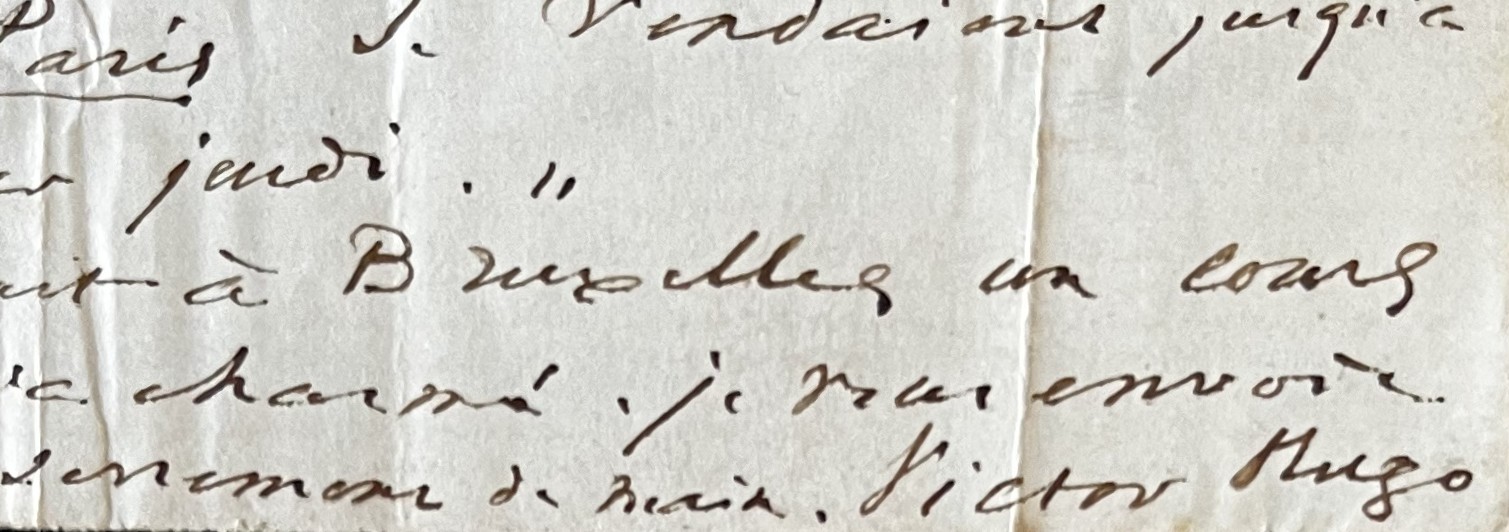 Paris de Vendaient jusqu'à
jeudi. "
à Bruxelles un cours
a charmé. je vous envoie
serrement de main. Victor Hugo